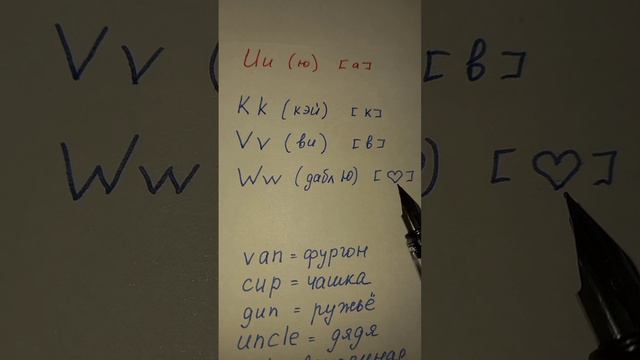 Uu (ю) [а]
Kk (кэй) [к]
Vv (ви) [в]
Ww (дабл ю) [♡]
van = фургон
cup = чашка
gun = ружьё
uncle = дядя